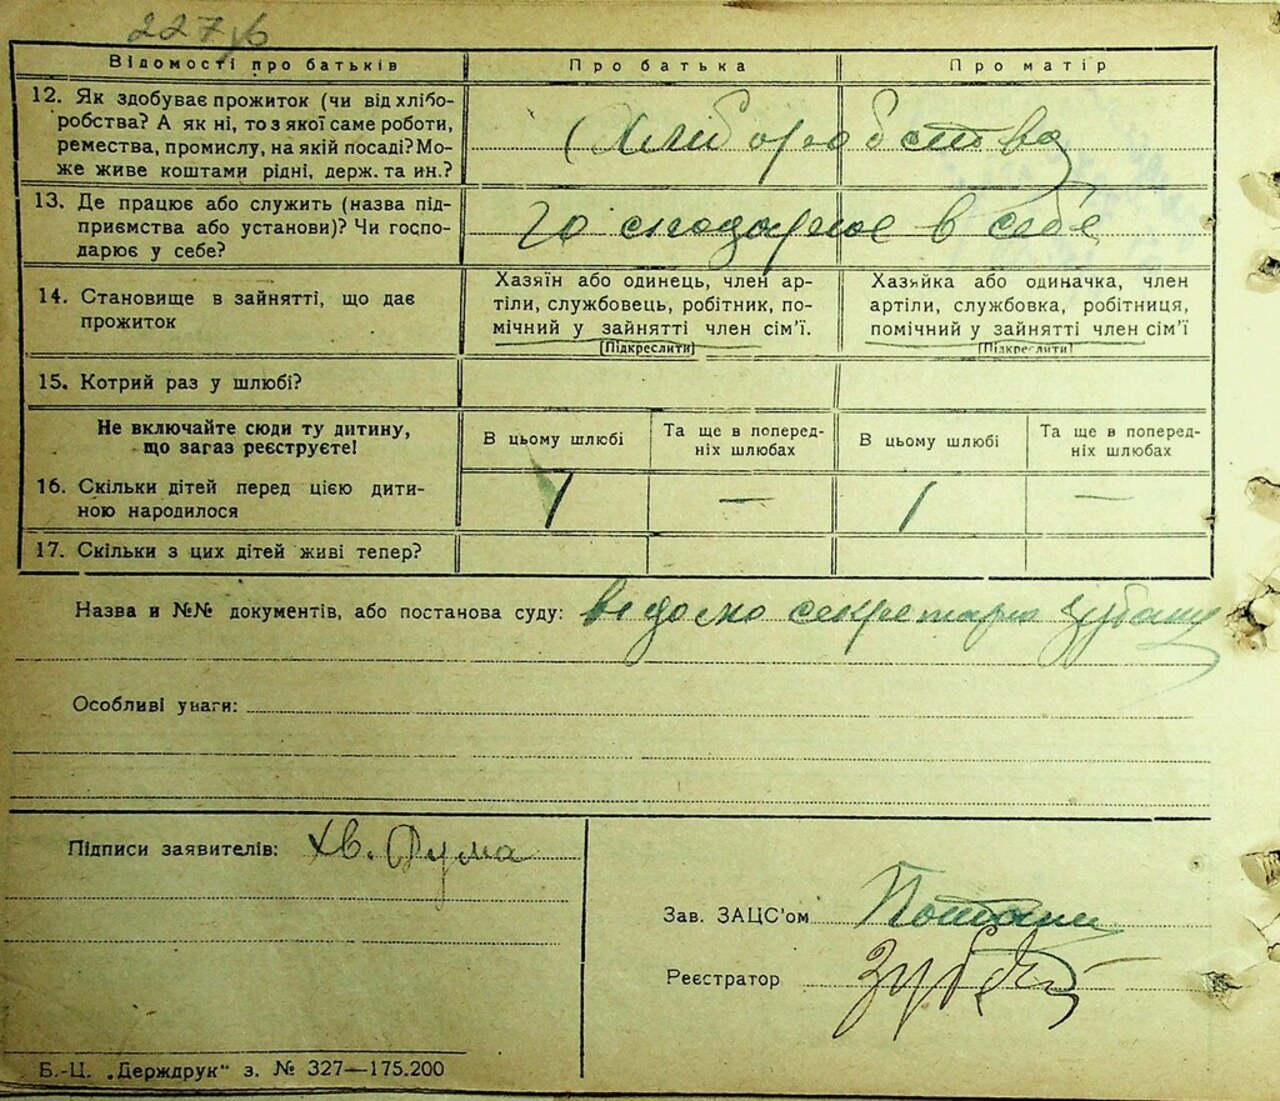 227
Відомості про батьків Про батька Про матір
12. Як здобуває прожиток (чи від хлібо-
робства? А як ні, то з якої саме роботи,
ремества, промислу, на якій посаді? Мо-
же живе коштами рідні, держ. та ин.?
Хліборобства
13. Де працює або служить (назва під-
приємства або установи)? Чи госпо-
дарює у себе?
в себе
14. Становище в зайнятті, що дає
прожиток
Хазяїн або одинець, член ар-
тіли, службовець, робітник, по-
мічний у зайнятті член сім'ї.
(Підкреслити)
Хазяйка або одиначка, член
артіли, службовка, робітниця,
помічний у зайнятті член сім'ї
(Підкреслити)
15. Котрий раз у шлюбі?
Не включайте сюди ту дитину,
що загаз реєструєте!
В цьому шлюбі
Та ще в поперед-
ніх шлюбах
В цьому шлюбі
Та ще в поперед-
ніх шлюбах
16. Скільки дітей перед цією дити-
ною народилося
1 — 1 —
17. Скільки з цих дітей живі тепер?
Назва и №№ документів, або постанова суду: відомо секретарю
Особливі уваги:
Підписи заявителів: Хв. Дума
Зав. ЗАЦС'ом
Реєстратор
Б.-Ц. „Держдрук" з. № 327—175.200